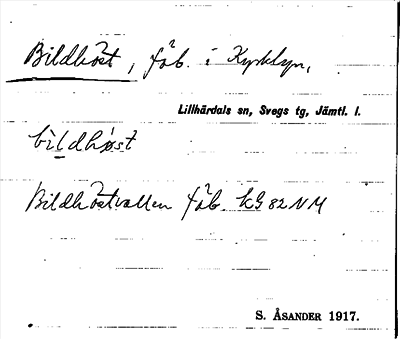 Bildhöst, fäb. i Kyrkbyn,
Lillhärdals sn, Svegs tg, Jämtl. l.
bildhöst
Bildhöstvallen fäb. kG 82 NM
S. ÅSANDER 1917.